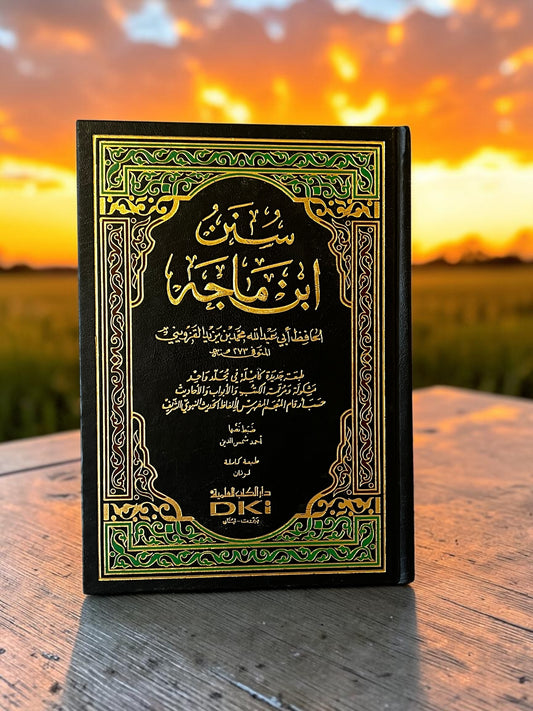 سُنَنُ
ابن ماجه
الحافظ أبي عبد الله محمد بن يزيد القزويني
المتوفى ٢٧٣ هـ
طبعة جديدة كاملة في مجلد واحد
مشكولة ومرقمة الكتب والأبواب والأحاديث
حسب أرقام المعجم المفهرس لألفاظ الحديث النبوي الشريف
ضبط نصها
أحمد شمس الدين
طبعة كاملة
لونان
دار الكتب العلمية
DKi
بيروت - لبنان